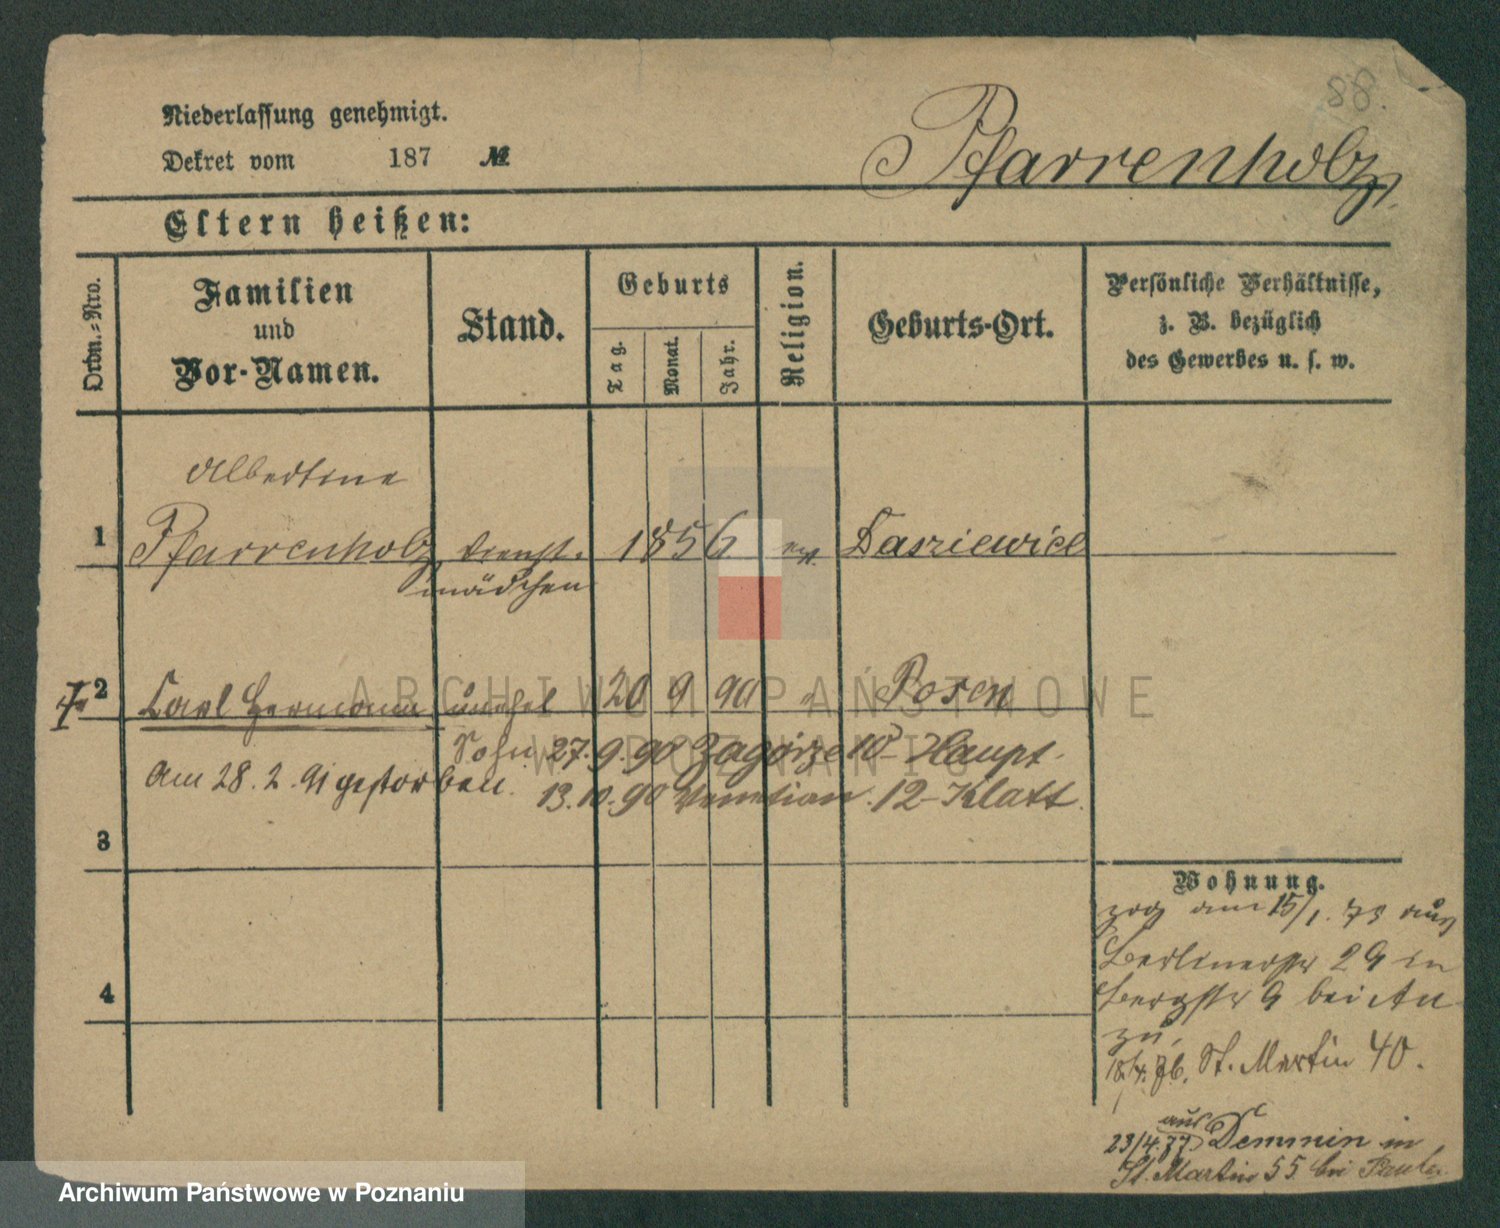 88.
Niederlassung genehmigt.
Dekret vom 187 №
Pfarrenholz
Eltern heißen:
Ordn.=Nro.
Familien
und
Vor-Namen.
Stand.
Geburts
Tag.
Monat.
Jahr.
Religion.
Geburts-Ort.
Persönliche Verhältnisse,
z. B. bezüglich
des Gewerbes u. s. w.
Albertine
1 Pfarrenholz Dienst- 1856 ev. Dasziewice
mädchen
2 Carl Hermann unehel 20 9 90 " Posen
Sohn 27.9.90 Zagórze 10 - Haupt.
Am 28.2.91 gestorben. 13.10.90 Venetian. 12 - Klatt.
3
4
Wohnung.
zog am 15/1. 73 aus
Berlinerstr 29 in
Bergstr 9 bei
zu.
18/4. 76. St. Martin 40.
aus
23/4.77 Demmin in
St. Martin 55 bei
ARCHIWUM PAŃSTWOWE
W POZNANIU
Archiwum Państwowe w Poznaniu